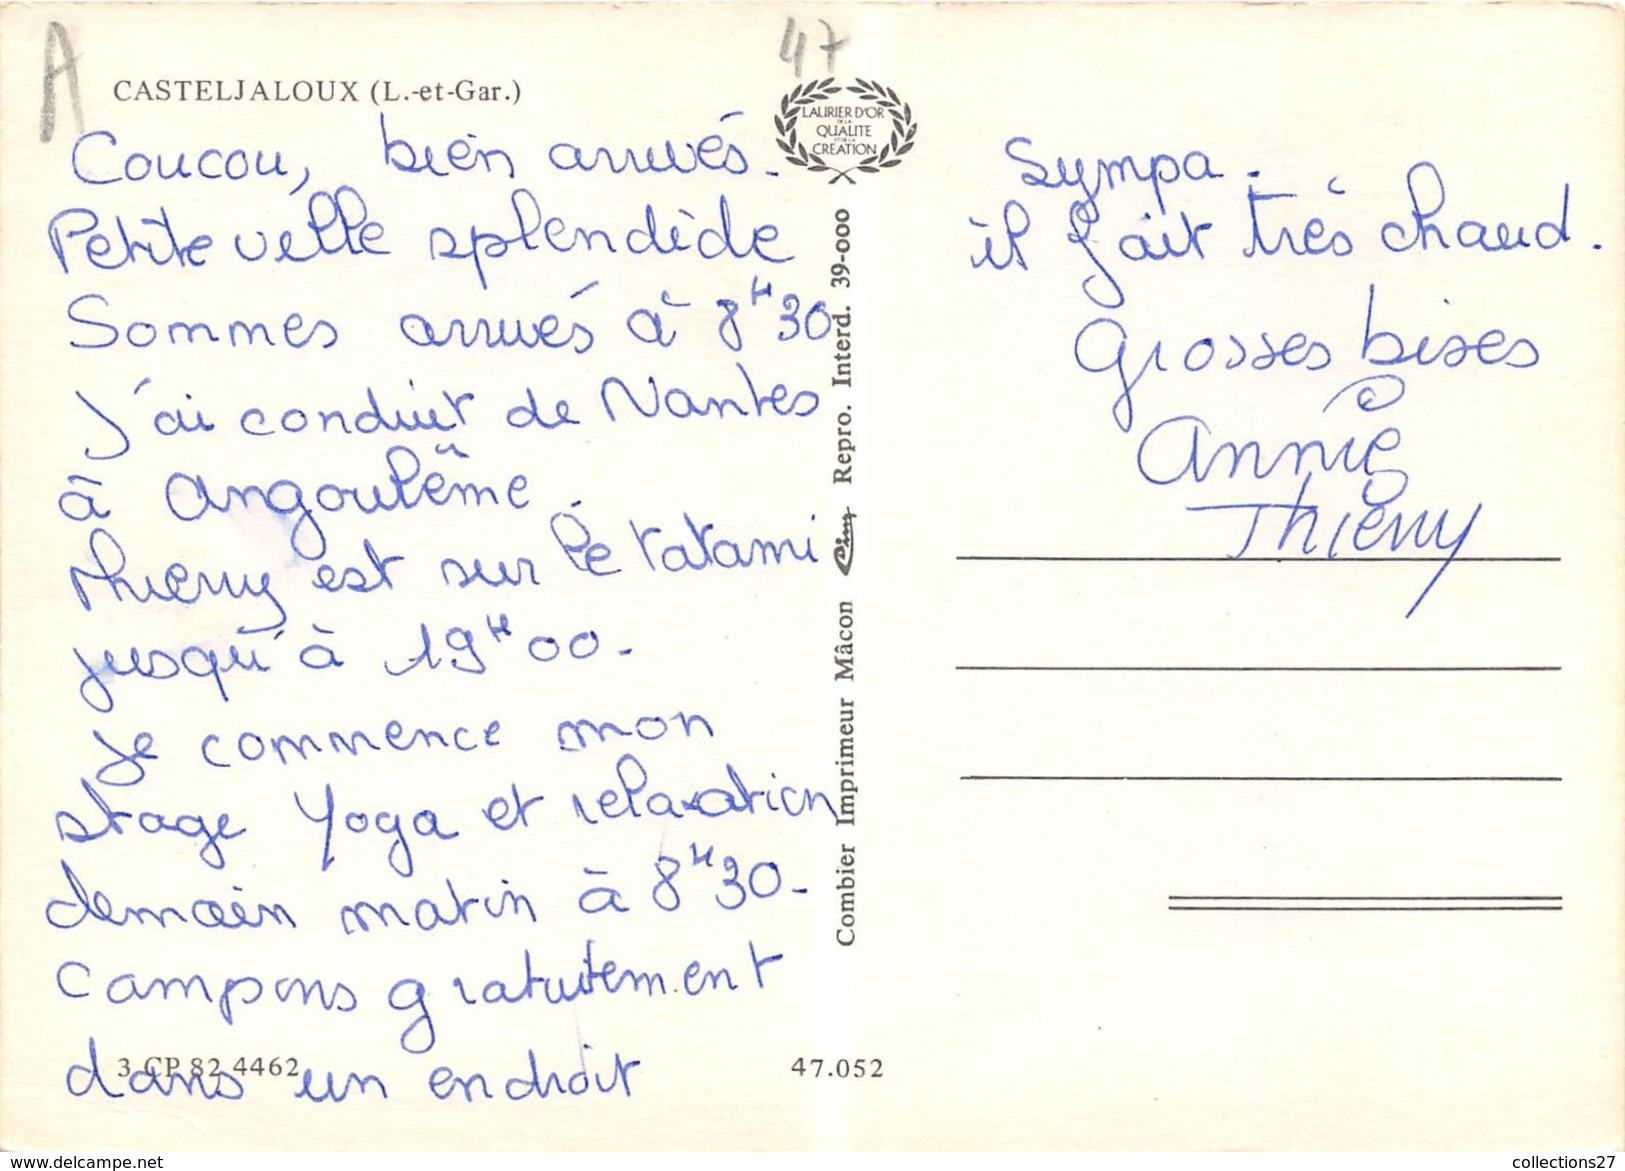 A
47
CASTELJALOUX (L.-et-Gar.)
LAURIER D'OR
DE LA
QUALITE
ET DE LA
CREATION
Coucou, bien arrivés.
Petite ville splendide
Sommes arrivés à 8H30
J'ai conduit de Nantes
à Angoulême.
Thierry est sur le tatami
jusqu'à 19H00.
Je commence mon
stage Yoga et relaxation
demain matin à 8H30.
Campons gratuitement
dans un endroit
3 CP 82 4462
47.052
Combier Imprimeur Mâcon Cim Repro. Interd. 39-000
sympa.
il fait très chaud.
Grosses bises
Annie
Thierry
collections27